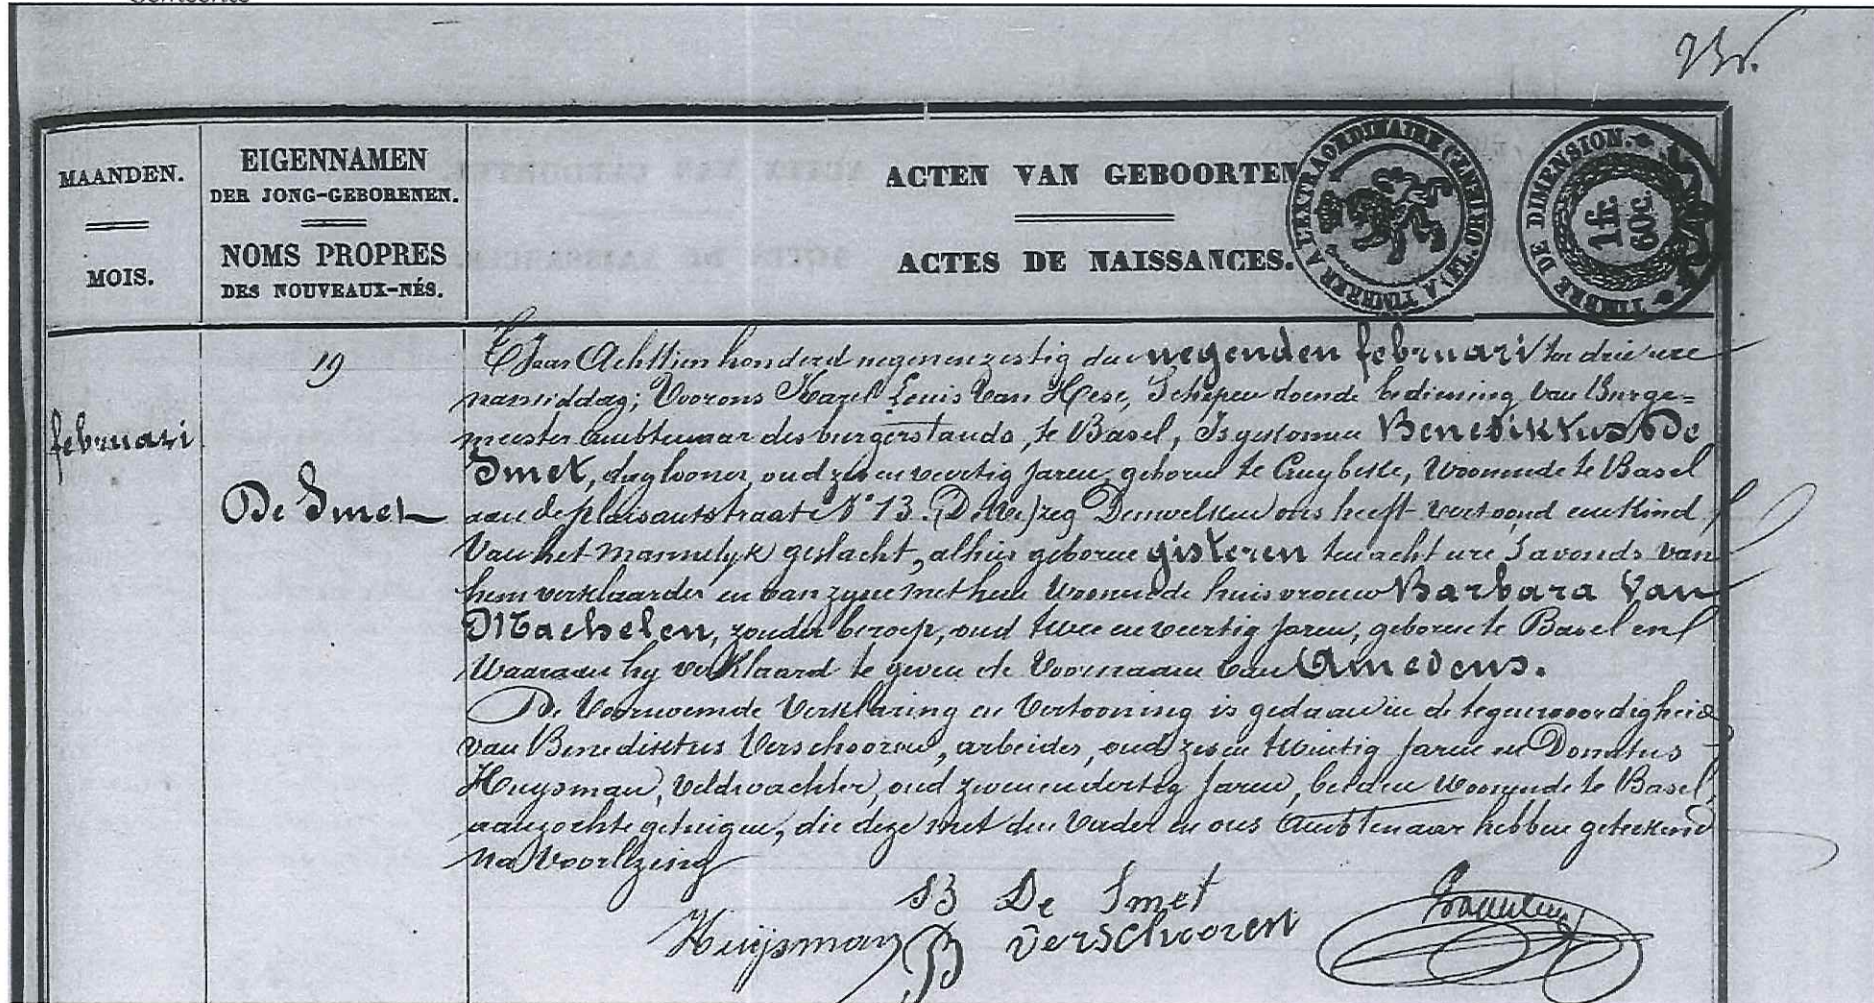 Gemeente
MAANDEN.
MOIS.
EIGENNAMEN
DER JONG-GEBORENEN.
NOMS PROPRES
DES NOUVEAUX-NÉS.
ACTEN VAN GEBOORTEN
ACTES DE NAISSANCES.
TIMBRE DE DIMENSION.
1 fr.
60 c.
februari
19
De Smet
T Jaar Achttien honderd negenenzestig den negenden februari ten drie ure
namiddag; Voor ons Karel Louis Van Hese, Schepen doende bediening van Burge=
meester Ambtenaar des burgerstands, te Basel, Is gekomen Benediktus De
Smet, daglooner, oud zes en veertig Jaren, geboren te Cruybeke, Woonende te Basel
aan de plaisantstraat N° 13. Denwelken ons heeft vertoond een Kind
Van het mannelyk geslacht, alhier geboren gisteren ten acht ure s'avonds van
hem verklaarder en van zyne met hem Woonende huisvrouw Barbara Van
Machelen, zonder beroep, oud twee en veertig Jaren, geboren te Basel en
Waaraan hy verklaard te geven de Voornaam van Amedeus.
De Voornoemde Verklaring en Vertooning is gedaan in de tegenwoordigheid
van Benediktus Verschooren, arbeider, oud zes en twintig Jaren en Donatus
Huysman, Veldwachter, oud zevenendertig Jaren, beiden Woonende te Basel,
aanzochte getuigen, die deze met den Vader en ons Ambtenaar hebben geteekend
Na Voorlezing
B De Smet
Huijsman B Verschooren